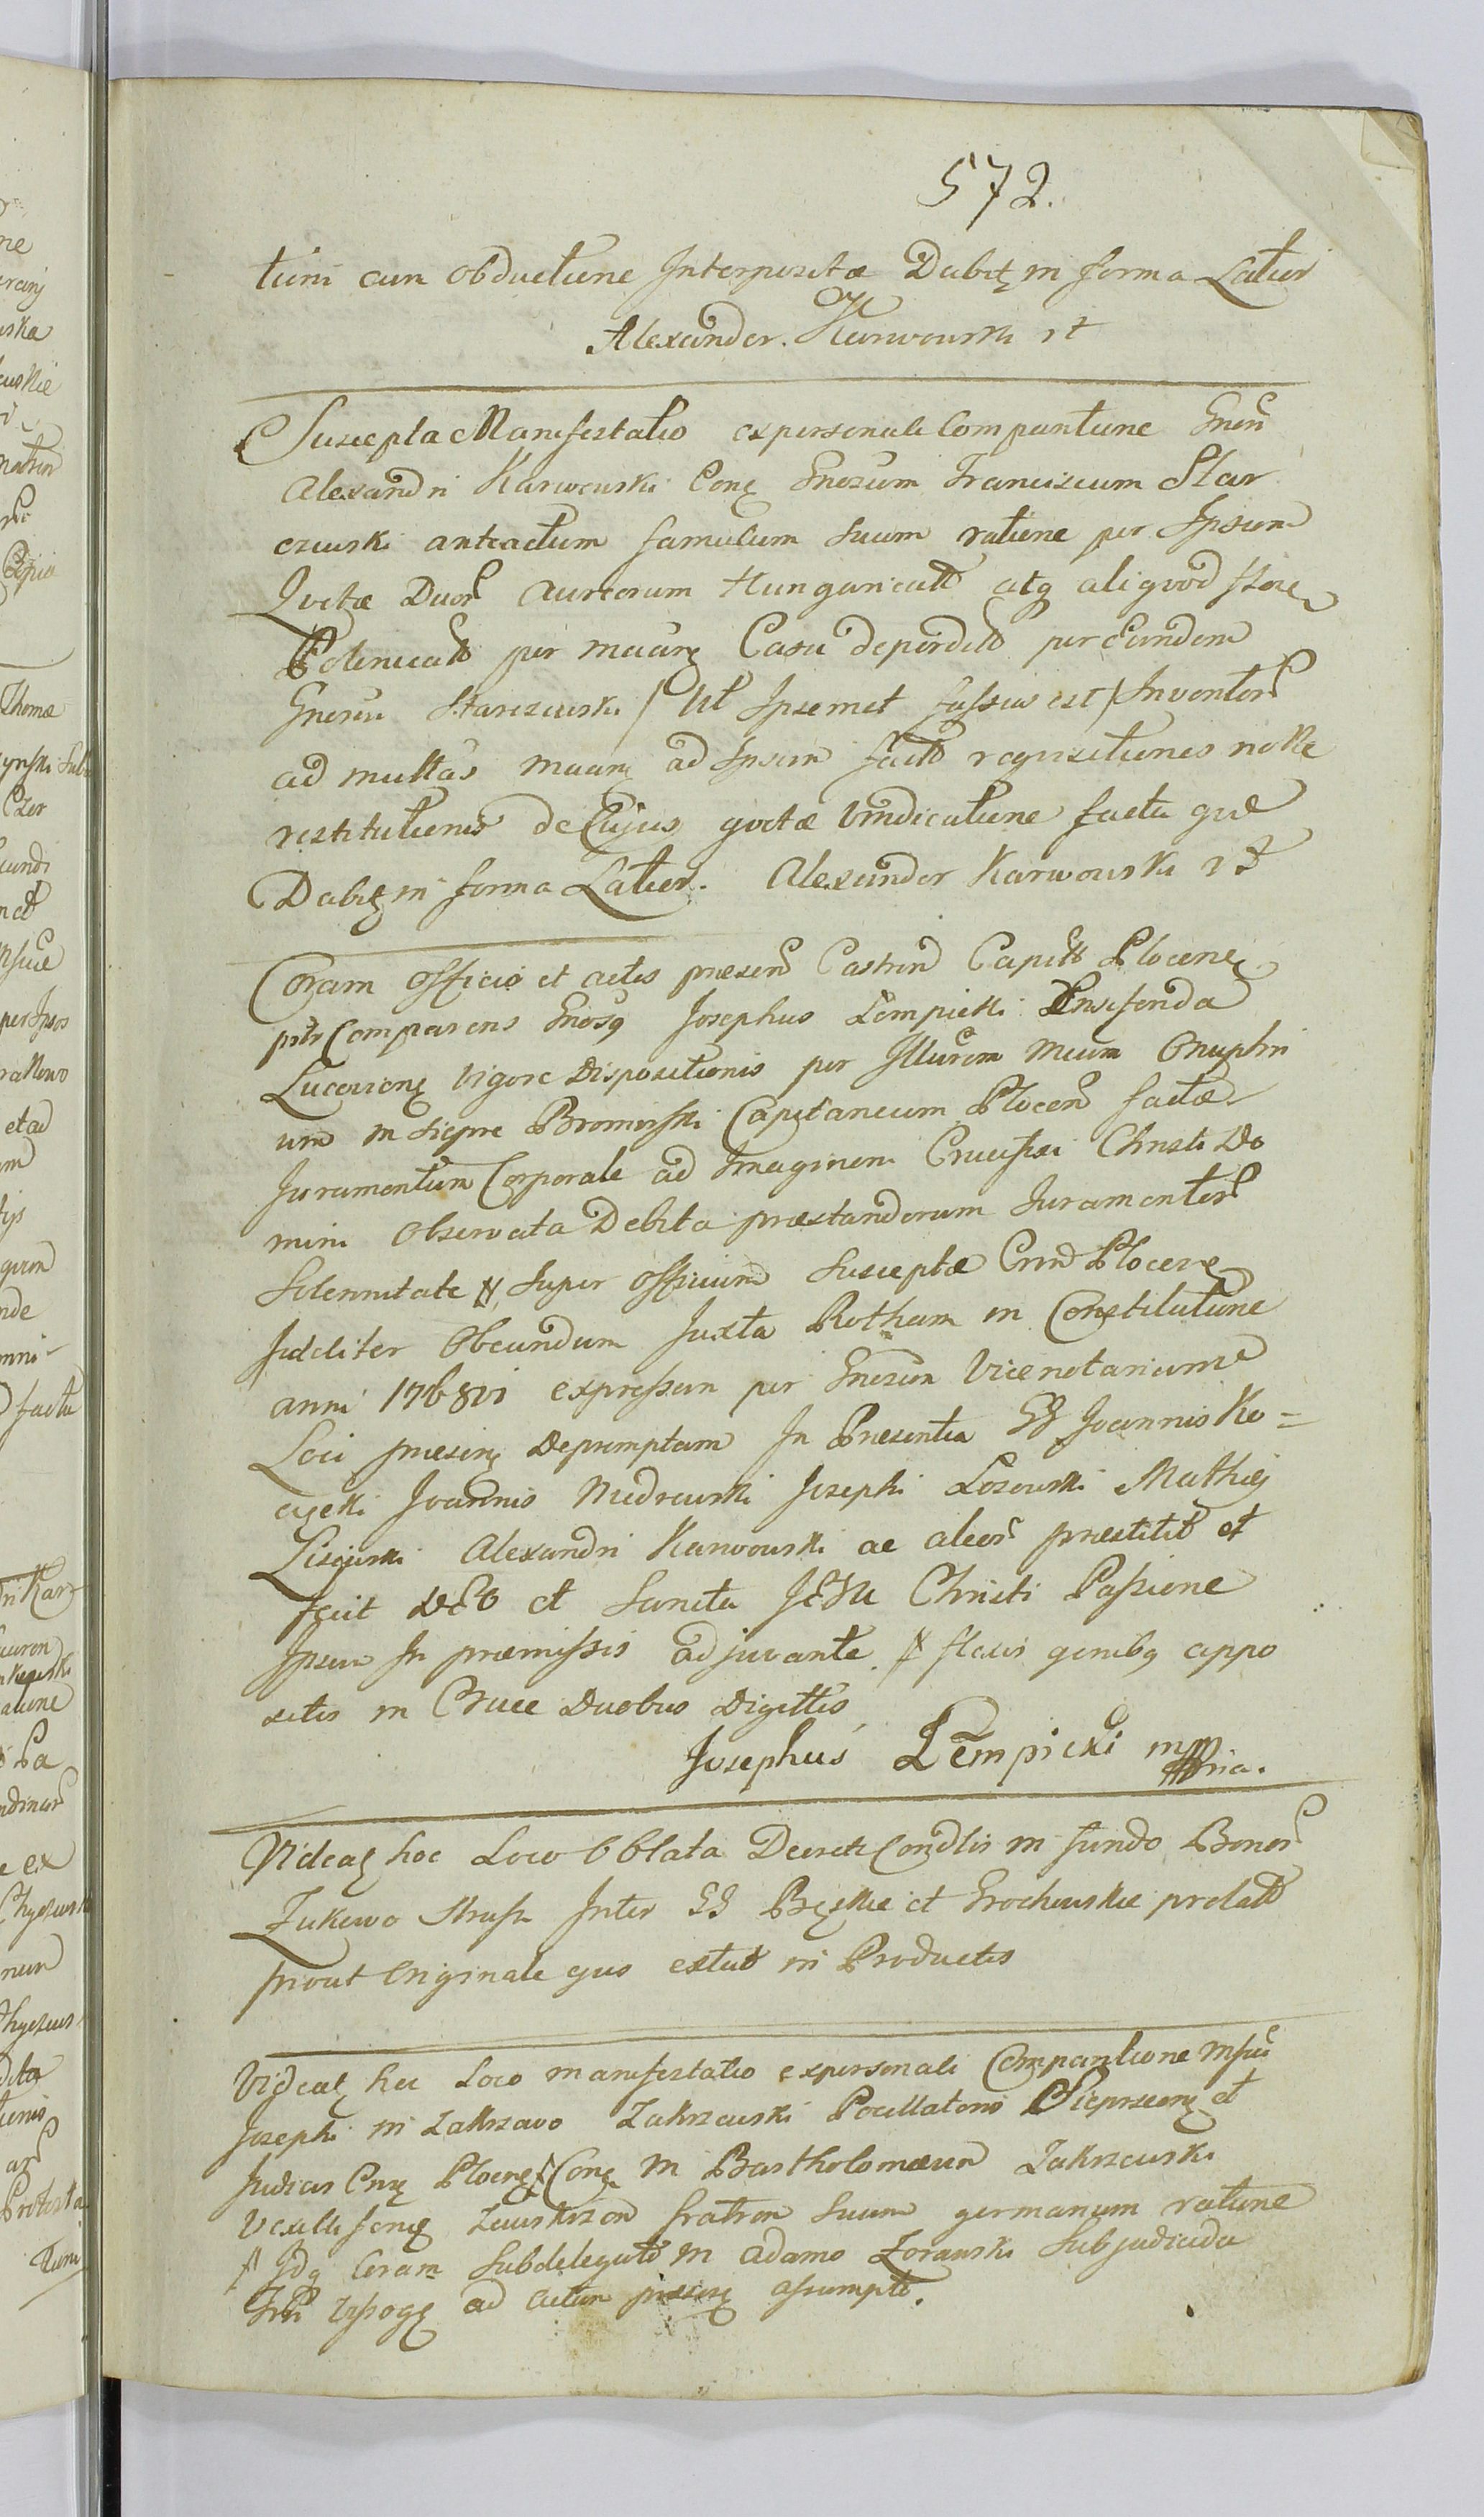 572.
tiům cum obductione Interpositæ Dabit in forma Latiori
Alexander Karwowski
Suscepta Manifestatio ex personali Comparitione Gnen
Alexandri Karwowski Con Gnosum Franciscum Star
czewski anteactum famulum suum ratione per Ipsum
Qvotæ Duor Aureorum Hungaricall atq aliqvod flore
Polonicall per Casu deperdit per Eundem
Gnosum Starczewski / Ut Ipsemet fassus est / Inventor
ad multas ad Ipsum fact reqvisitiones nolle
restitutionis de Cujus qvotæ Vindicatione facta
Dabit in forma Latior. Alexander Karwowski
Coram Officio et actis præsen Castren Capitt Plocen
Comparens Gnosq Josephus Lempicki Ensifenda
vigore Dispositionis per Illurem Mcum Onuphri
um in Siepre Bromirski Capitaneum Plocen factæ
Juramentum Corporale ad Imaginem Crucifixi Christi Do
mini Observata Debita præstandorum Juramentor
Solennitate # Super Officium Susceptæ Plocen
fideliter Obeundum Juxta Rotham in Constitutione
anni 1768vi expressam per Gnosum Vicenotarium
Loci præsen Depromptam In Præsentia GG Joannis Ko=
Joannis Josephi Mathiej
Alexandri Karwowski ac alior præstitit et
fecit DEO et Sancta JESU Christi Passione
Ipsum In præmissis adjuvante # flexis genibq appo
sitis in Cruce Duobus Digittis
Josephus Lempicki mppria.
Videat hoc Loco Oblata Decreti Condlis in fundo Bonor
Zukowo Inter GG et Grochowskie prolatt
prout Originale ejus extat in Productis
Videat hic Loco manifestatio ex personali Comparitione Mfci
Josephi in Zakrzewo Zakrzewski Pocillatoris et
Judicis Plocen Con M Bartholomæum Zakrzewski
fratrem Suum germanum ratione
# Idq Coram Subdelegato M Adamo Zorawski Subjudice
ad actum præsen assumpto.